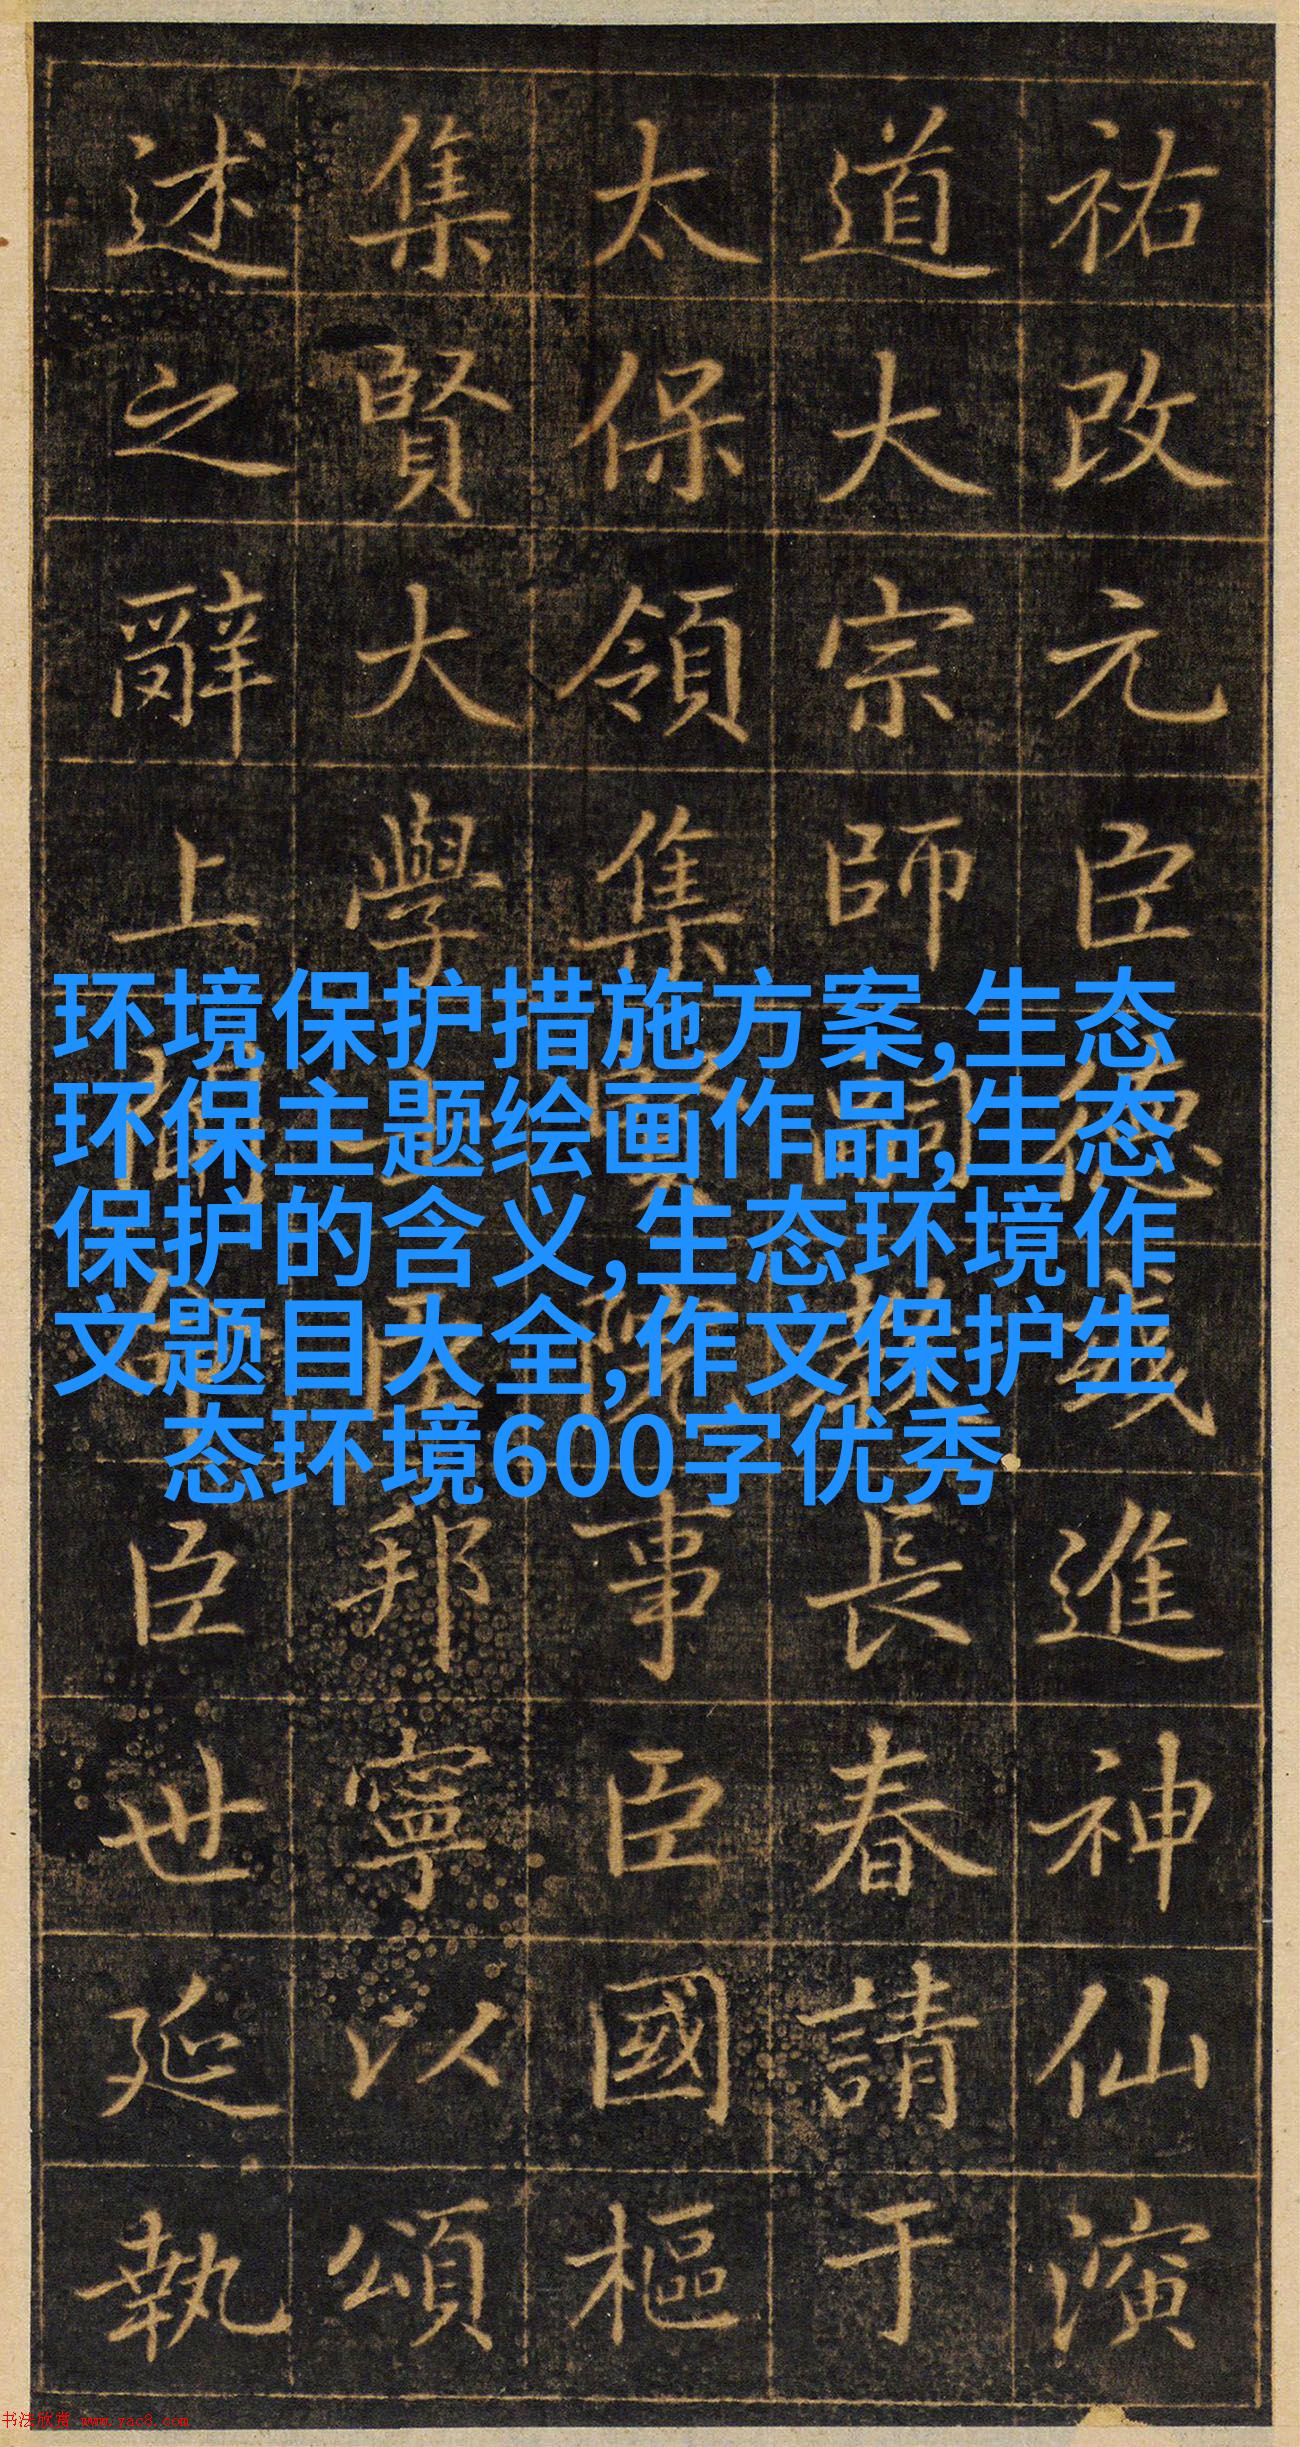 祐改元臣德進神仙演
道大宗師嗣教長春請于
太保領集賢院事臣國樞
集賢大學士臣邦寧以頌
述之辭上聞命臣世延執
环境保护措施方案,生态
环保主题绘画作品,生态
保护的含义,生态环境作
文题目大全,作文保护生
态环境600字优秀
书法欣赏 www.yac8.com